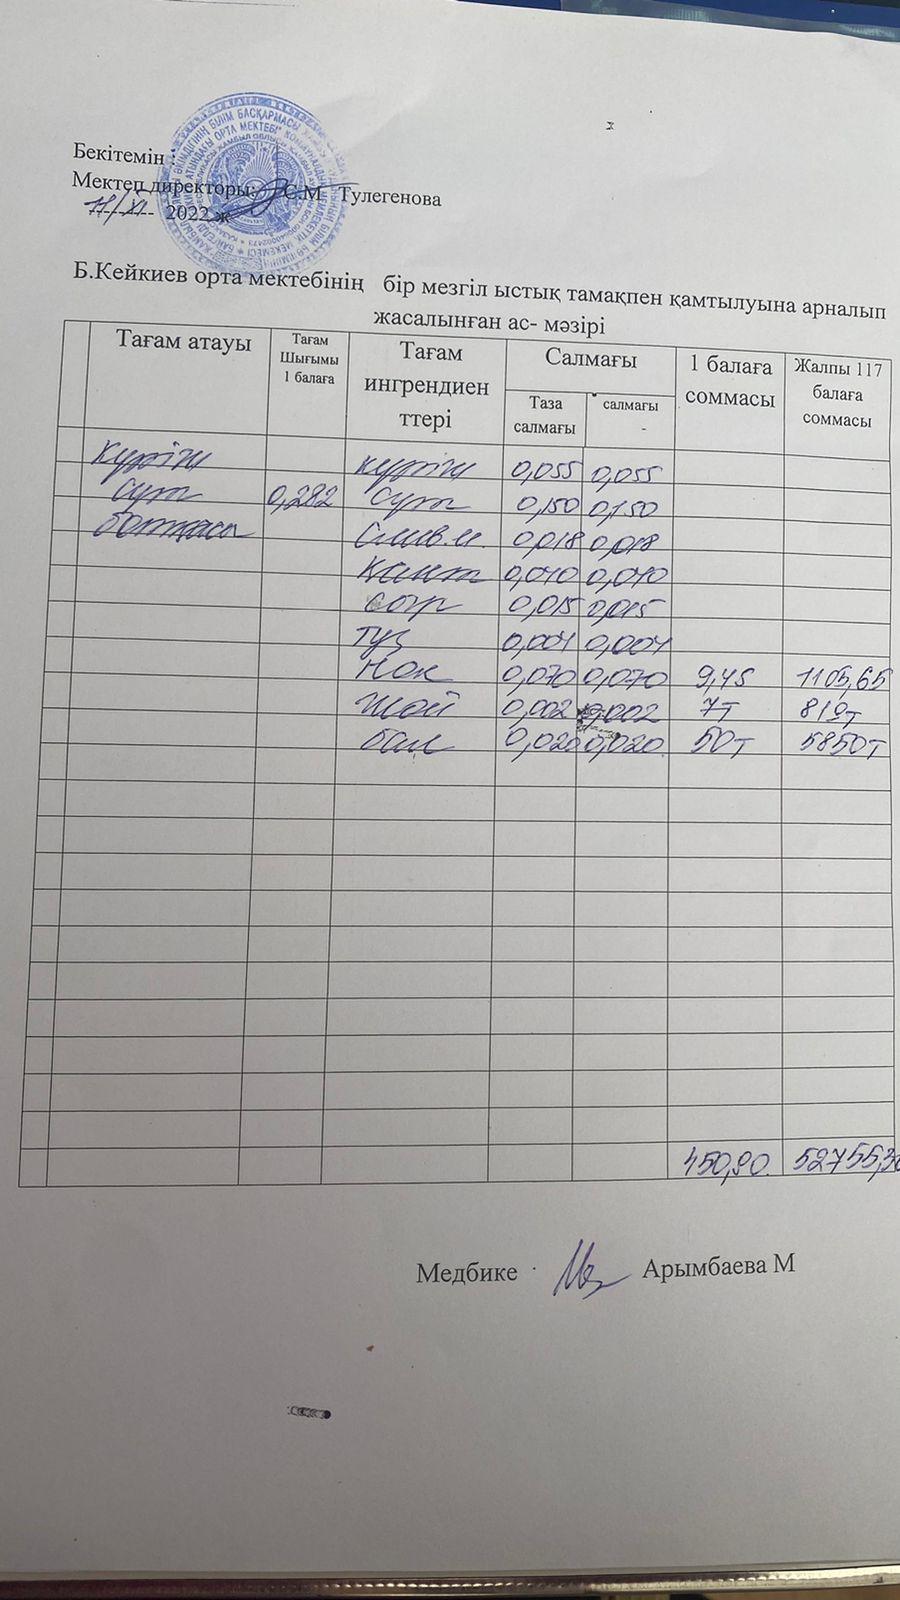 Бекітемін :
Мектеп директоры: С.М Тулегенова
11/XI 2022 ж
Б.Кейкиев орта мектебінің бір мезгіл ыстық тамақпен қамтылуына арналып
жасалынған ас- мәзірі
Тағам атауы
Тағам
Шығымы
1 балаға
Тағам
ингрендиен
ттері
Салмағы
Таза
салмағы
салмағы
-
1 балаға
соммасы
Жалпы 117
балаға
соммасы
күріш күріш 0,055 0,055
сүт 0,282 сүт 0,150 0,150
ботқасы Слив.м. 0,018 0,018
қант 0,040 0,040
0,015 0,015
тұз 0,004 0,004
Нан 0,070 0,070 9,45 1105,65
Шай 0,002 0,002 7т 819т
бал 0,020 0,020 50т 5850т
450,90 52755,30
Медбике Арымбаева М